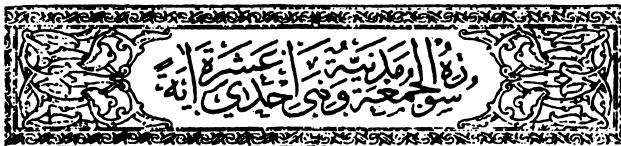 سُورَةُ الْجُمُعَةِ مَدَنِيَّةٌ وَهِيَ إِحْدَى عَشَرَةَ آيَةً